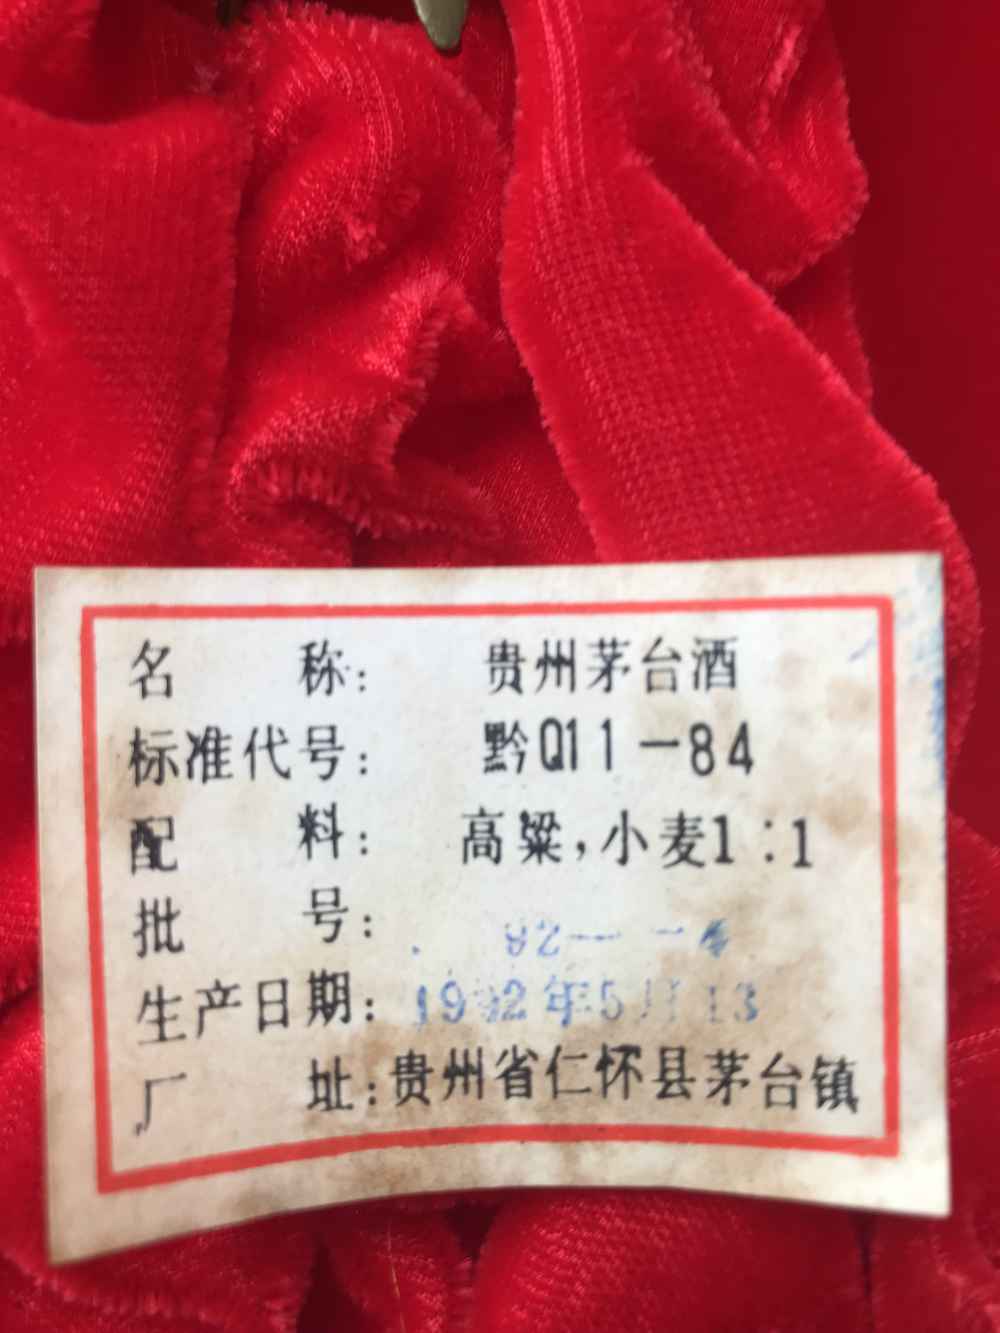 名 称: 贵州茅台酒
标准代号: 黔Q11-84
配 料: 高粱,小麦1:1
批 号: 92—
生产日期: 1992年5月13
厂 址:贵州省仁怀县茅台镇